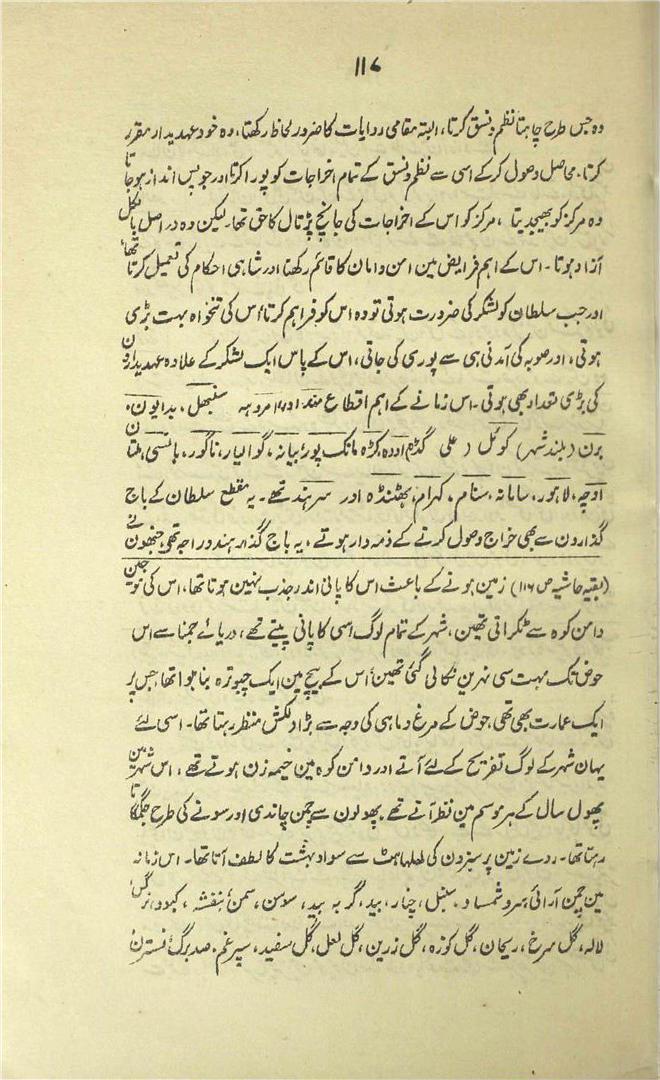 ۱۱۷
وہ جس طرح چاہتا نظم و نسق کرتا، البتہ مقامی روایات کا ضرور لحاظ رکھتا، وہ خود عہدیدار مقرر
کرتا، محاصل وصول کرکے اسی سے نظم و نسق کے تمام اخراجات کو پورا کرتا اور جو پس انداز ہوجاتا
وہ مرکز کو بھیجدیتا، مرکز کو اس کے اخراجات کی جانچ پڑتال کا حق تھا۔ لیکن وہ در اصل بالکل
آزاد ہوتا۔ اس کے اہم فرایض مین امن و امان کا قائم رکھنا اور شاہی احکام کی تعمیل کرتا تھا،
اور جب سلطان کو لشکر کی ضرورت ہوتی تو وہ اس کو فراہم کرتا، اس کی تنخواہ بہت بڑی
ہوتی، اور صوبہ کی آمدنی ہی سے پوری کی جاتی، اس کے پاس ایک لشکر کے علاوہ عہدیدارون
کی بڑی تعداد بھی ہوتی۔ اس زمانے کے اہم اقطاع امروہہ سنبھل، بدایون،
برن (بلند شہر) کوئل (علی گڈھ) اودہ، کڑہ مانک پور، بیانہ، گوالیار، ناگور، ہانسی، ملتان
اوچہ، لاہور، سامانہ، سنام، کہرام، بھٹنڈہ اور سرہند تھے۔ یہ مقطع سلطان کے باج
گذارون سے بھی خراج وصول کرنے کے ذمہ دار ہوتے، یہ باج گذار ہندو راجہ تھے، جنھون نے
(بقیہ حاشیہ ص ۱۱۶) زمین ہونے کے باعث اس کا پانی اندر جذب نہین ہوتا تھا، اس کی موجین
دامن کوہ سے ٹکراتی تھین، شہر کے تمام لوگ اسی کا پانی پیتے تھے، دریائے جمنا سے اس
حوض تک بہت سی نہرین نکالی گئی تھین، اس کے بیچ مین ایک چبوترہ بنا ہوا تھا، جس پر
ایک عمارت بھی تھی، حوض کے مرغ و ماہی کی وجہ سے بڑا دلکش منظر رہتا تھا۔ اسی لئے
یہان شہر کے لوگ تفریح کے لئے آتے اور دامن کوہ مین خیمہ زن ہوتے تھے، اس شہر مین
پھول سال کے ہر موسم مین نظر آتے تھے۔ پھولون سے چمن چاندی اور سونے کی طرح جگمگاتا
رہتا تھا۔ روے زمین پر سبزون کی لہلہاہٹ سے سواد بہشت کا لطف آتا تھا۔ اس زمانہ
مین چمن آرائی سرو شمساد، سنبل، چنار، بید، گربہ بید، سوسن، سمن، بنفشہ، کبود، نرگس،
لالہ، گل سرخ، ریحان، گل کوزہ، گل زرین، گل لعل، گل سفید، سپرغم، صد برگ، نسترن،